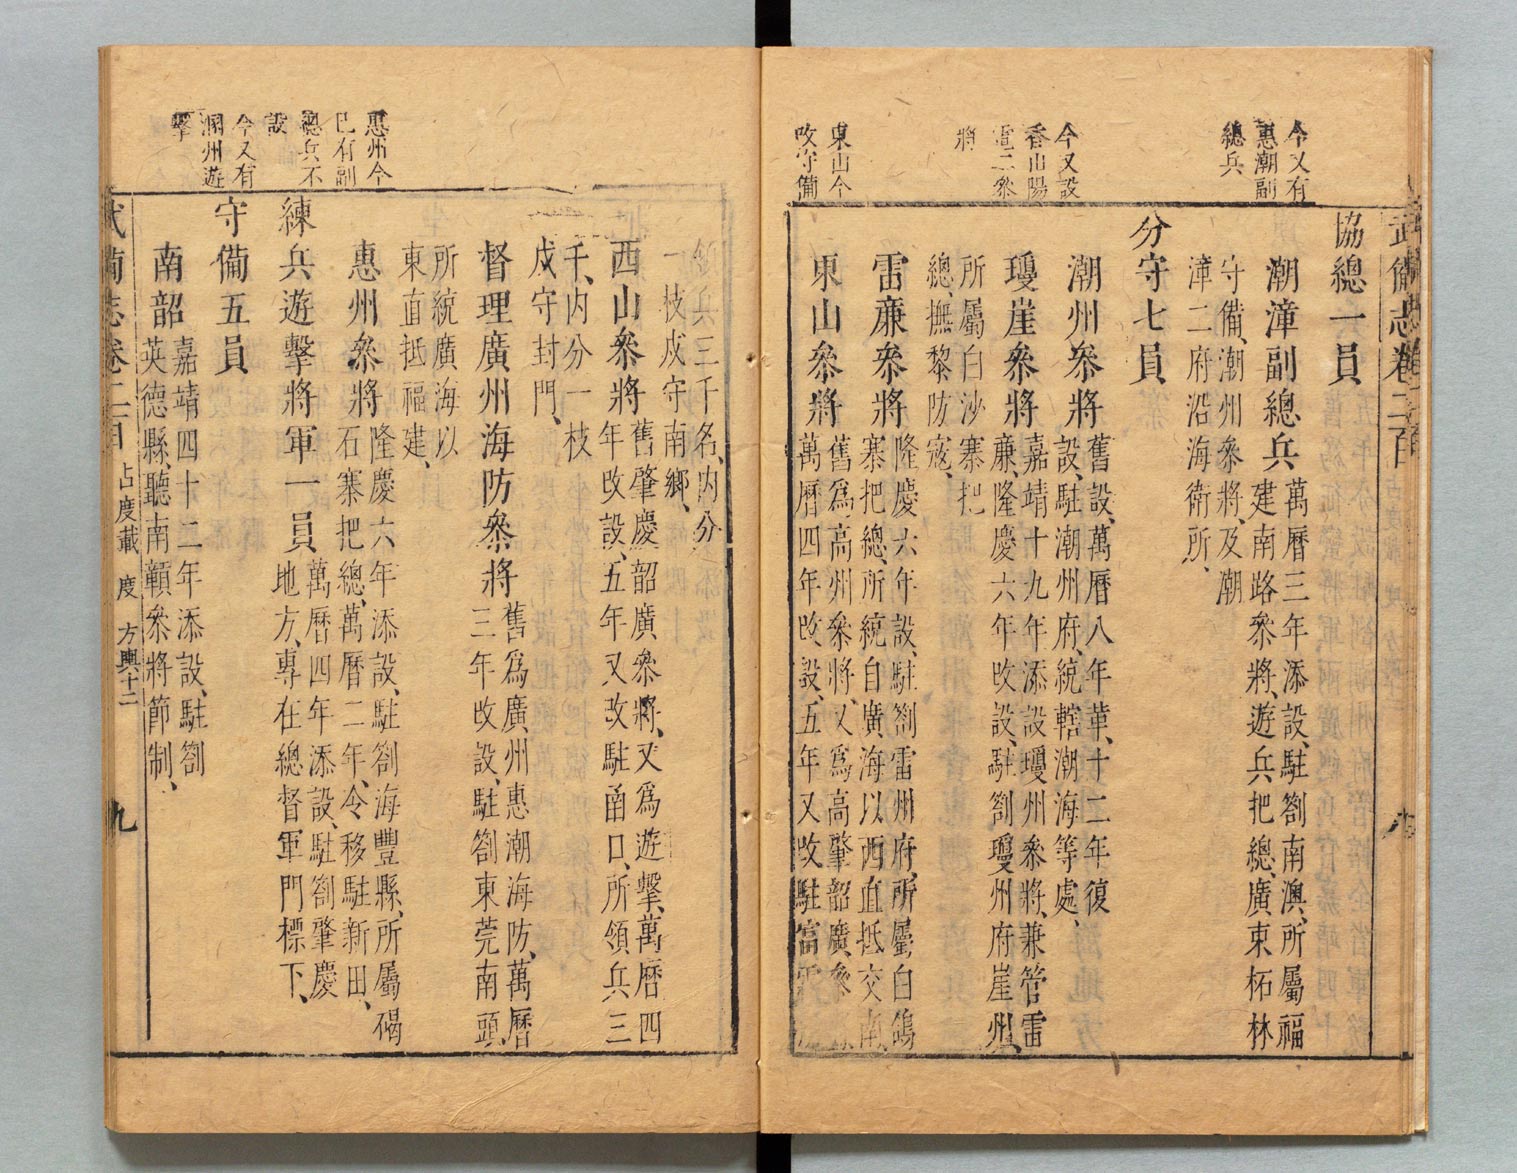 今又有
惠潮副
總兵
今又設
香山陽
電二叅
將
東山今
改守備
武備志卷二百
協總一員
潮漳副總兵
萬曆三年添設駐劄南澳所屬福
建南路叅將遊兵把總廣東柘林
守備潮州叅將及潮
漳二府沿海衛所
分守七員
潮州叅將
舊設萬曆八年革十二年復
設駐潮州府統轄潮海等處
瓊崖叅將
嘉靖十九年添設瓊州叅將兼管雷
廉隆慶六年改設駐劄瓊州府崖州
所屬白沙寨把
總撫黎防寇
雷廉叅將
隆慶六年設駐劄雷州府所屬白鴿
寨把總所統自廣海以西直抵交南
東山叅將
舊爲高州叅將又爲高肇韶廣叅
萬曆四年改設五年又改駐富
兵三千名内分
一枝戍守南鄉
西山叅將
舊肇慶韶廣叅將又爲遊擊萬曆四
年改設五年又改駐凾口所領兵三
千内分一枝
戍守封門
督理廣州海防叅將
舊爲廣州惠潮海防萬曆
三年改設駐劄東莞南頭
所統廣海以
東直抵福建
惠州叅將
隆慶六年添設駐劄海豐縣所屬碣
石寨把總萬曆二年令移駐新田
練兵遊擊將軍一員
萬曆四年添設駐劄肇慶
地方專在總督軍門標下
守備五員
南韶
嘉靖四十二年添設駐劄
英德縣聽南贛叅將節制
惠州今
已有副
總兵不
設
今又有
潿州遊
擊
武備志卷二百
占度載 度 方輿十二
九